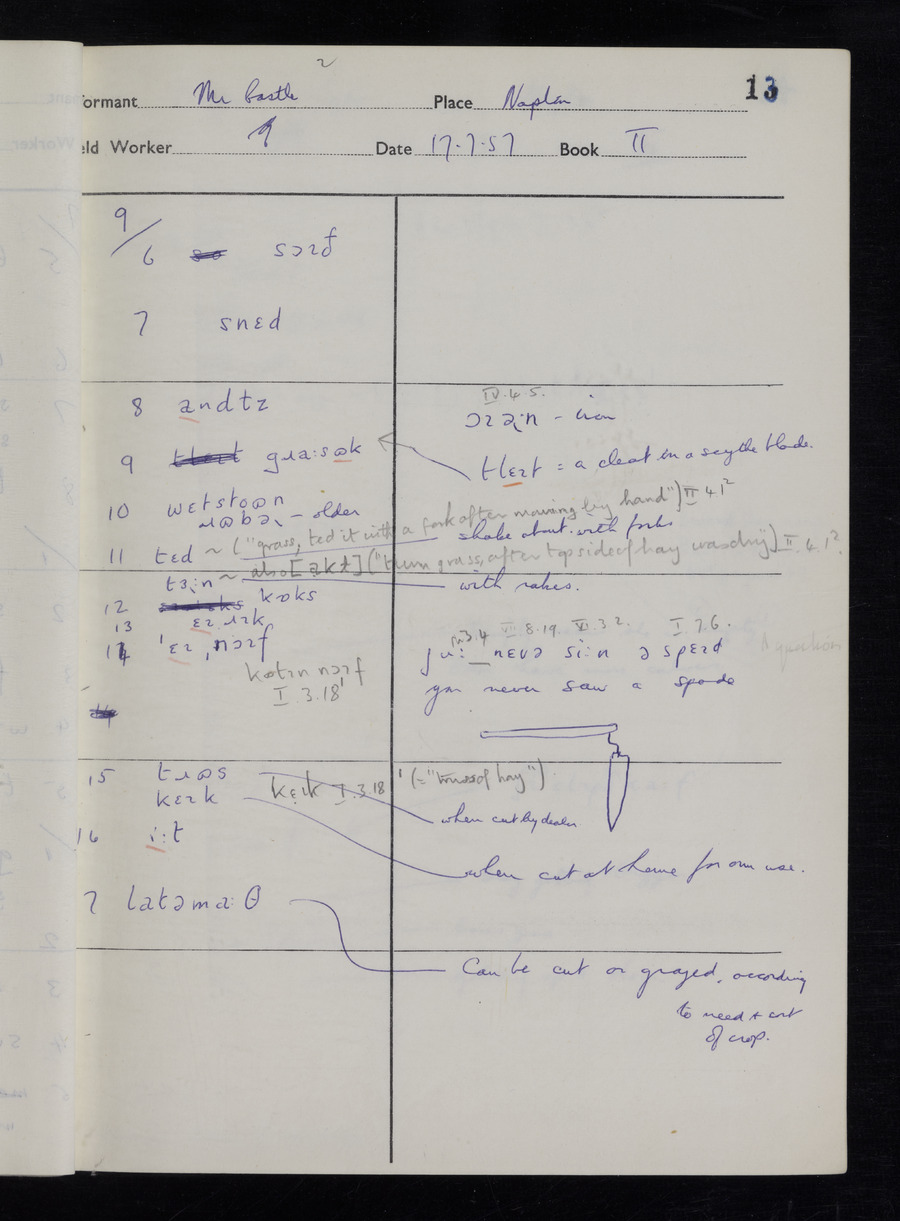 13
ormant Mr Castle Place
ld Worker Date 17.7.57 Book II
9/6 sɔɪf
7 snɛd
8 andɫz
IV.4.5.
- iron
9 gɹa:sək
tlɛɪt = a cleat in a scythe blade.
10 wɛtstoən
ɹəbə - older
11 tɛd ~ ("grass, ted it with a fork after mowing by hand") II 4 1²
shake about with forks
also [akt] ("turn grass, after top side of hay was dry") II.4.1²
tɜ:n ~ with rakes.
12 kɒks
13 ɛɪ ɹɪk
14 'ɛɪ ˌnɔɪf
kɒtɪn nɔɪf
I.3.18¹
3.4 VIII 8.19. VI.3 2. I 7.6.
ju: nɛvə si:n ə spɛɪd
you never saw a spade
15 tɹəs
kɛɪk
kɛɪk I.3.18¹ (= "truss of hay")
when cut by dealer.
16 i:t
when cut at home for own use.
7 latəma:θ
Can be cut or grazed, according
to need &
of crop.